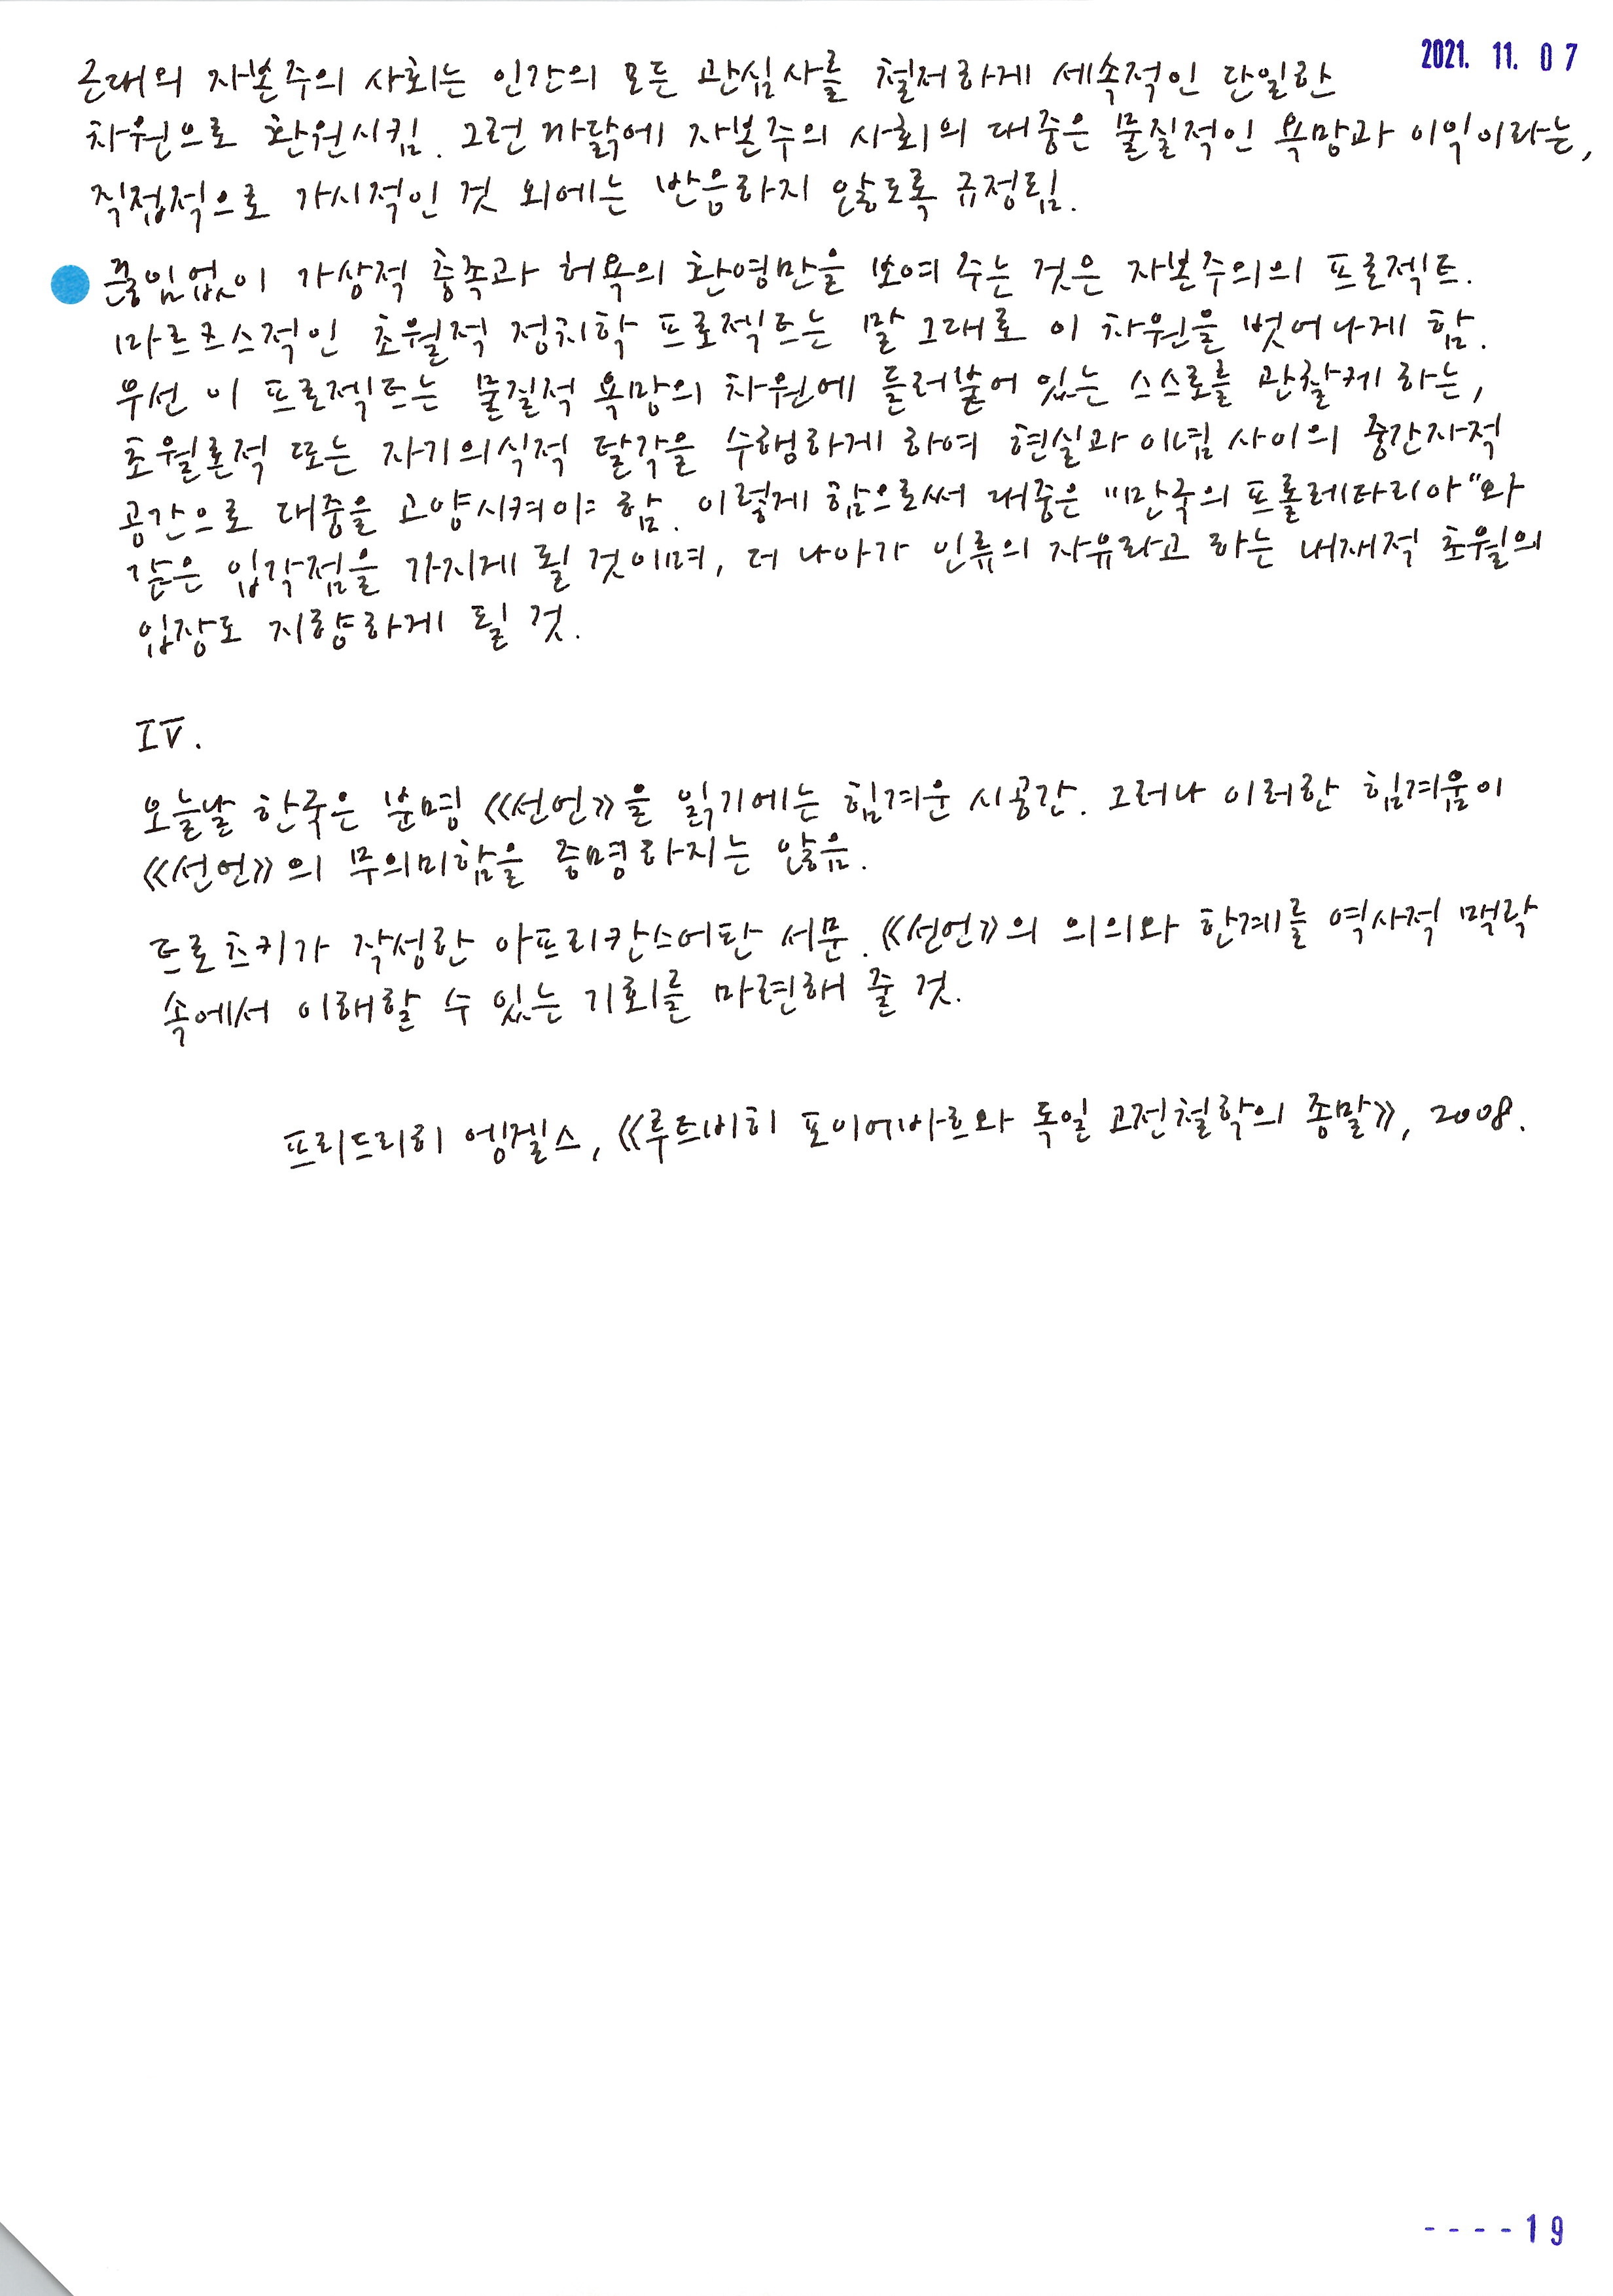 2021. 11. 07
근대의 자본주의 사회는 인간의 모든 관심사를 철저하게 세속적인 단일한
차원으로 환원시킴. 그런 까닭에 자본주의 사회의 대중은 물질적인 욕망과 이익이라는,
직접적으로 가시적인 것 외에는 반응하지 않도록 규정됨.
끊임없이 가상적 충족과 허욕의 환영만을 보여 주는 것은 자본주의의 프로젝트.
마르크스적인 초월적 정치학 프로젝트는 말 그대로 이 차원을 벗어나게 함.
우선 이 프로젝트는 물질적 욕망의 차원에 들러붙어 있는 스스로를 관찰케 하는,
초월론적 또는 자기의식적 달각을 수행하게 하여 현실과 이념 사이의 중간자적
공간으로 대중을 고양시켜야 함. 이렇게 함으로써 대중은 "만국의 프롤레타리아"와
같은 입각점을 가지게 될 것이며, 더 나아가 인류의 자유라고 하는 내재적 초월의
입장도 지향하게 될 것.
IV.
오늘날 한국은 분명 《선언》을 읽기에는 힘겨운 시공간. 그러나 이러한 힘겨움이
《선언》의 무의미함을 증명하지는 않음.
트로츠키가 작성한 아프리칸스어판 서문. 《선언》의 의의와 한계를 역사적 맥락
속에서 이해할 수 있는 기회를 마련해 줄 것.
프리드리히 엥겔스, 《루트비히 포이어바흐와 독일 고전철학의 종말》, 2008.
----19